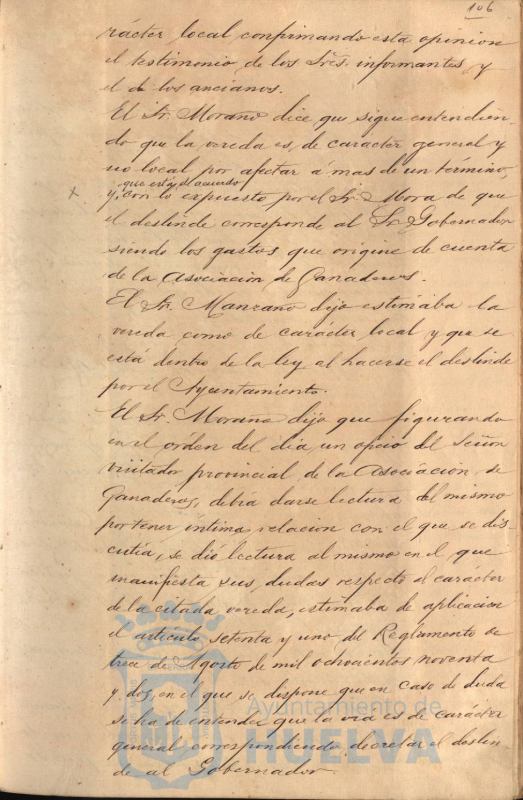 106
rácter local confirmando esta opinion
el testimonio de los Sres. informantes y
el de los ancianos.
El Sr. Moraño dice que sigue entendien-
do que la vereda es, de caracter general y
no local por afectar á mas de un término,
que está de acuerdo
x y, con lo expuesto por el Sr. Mora de que
el deslinde corresponde al Sr. Gobernador
siendo los gastos que origine de cuenta
de la Asociación de Ganaderos.
El Sr. Manzano dijo estimaba la
vereda como de carácter local y que se
está dentro de la ley al hacerse el deslinde
por el Ayuntamiento.
El Sr. Moraño dijo que figurando
en el orden del dia un oficio del Señor
visitador provincial de la Asociación de
Ganaderos, debía darse lectura del mismo
por tener íntima relacion con el que se dis-
cutía, se dio lectura al mismo en el que
manifiesta sus dudas respecto al carácter
de la citada vereda, estimaba de aplicacion
el artículo setenta y uno del Reglamento de
trece de Agosto de mil ochocientos noventa
y dos, en el que se dispone que en caso de duda
se ha de entender que la vía es de carácter
general, correspondiendo decretar el deslin-
de al Gobernador
Ayuntamiento de
HUELVA